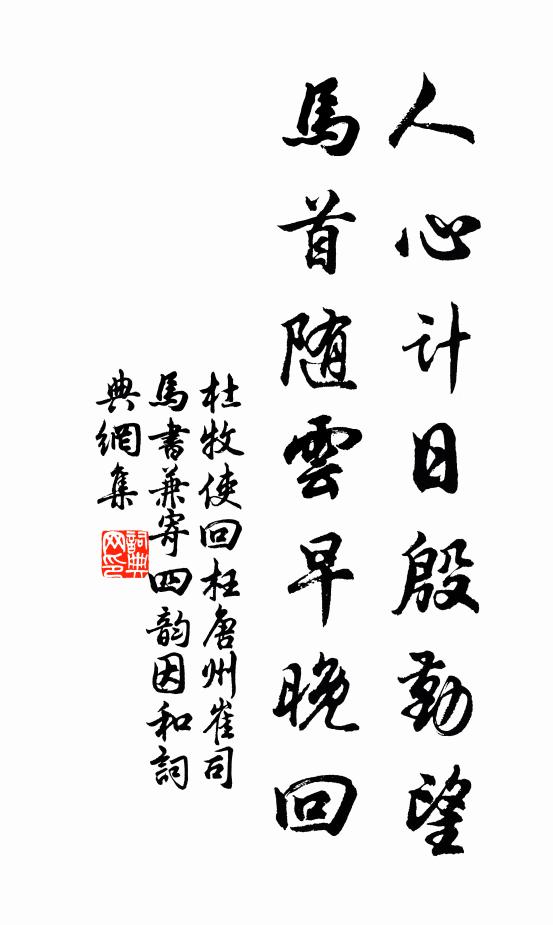 人心计日殷勤望
馬首随雲早晚回
杜牧使回枉唐州崔司
馬書兼寄四韵因和詞
典網集
詞典网印